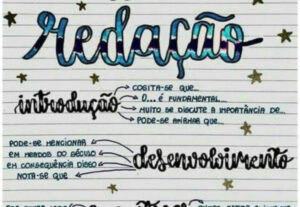 redação
introdução
COGITA-SE QUE...
O... É FUNDAMENTAL...
MUITO SE DISCUTE A IMPORTÂNCIA DE...
PODE-SE AFIRMAR QUE...
PODE-SE MENCIONAR
EM MEADOS DO SÉCULO
EM CONSEQUÊNCIA DISSO
NOTA-SE QUE
desenvolvimento